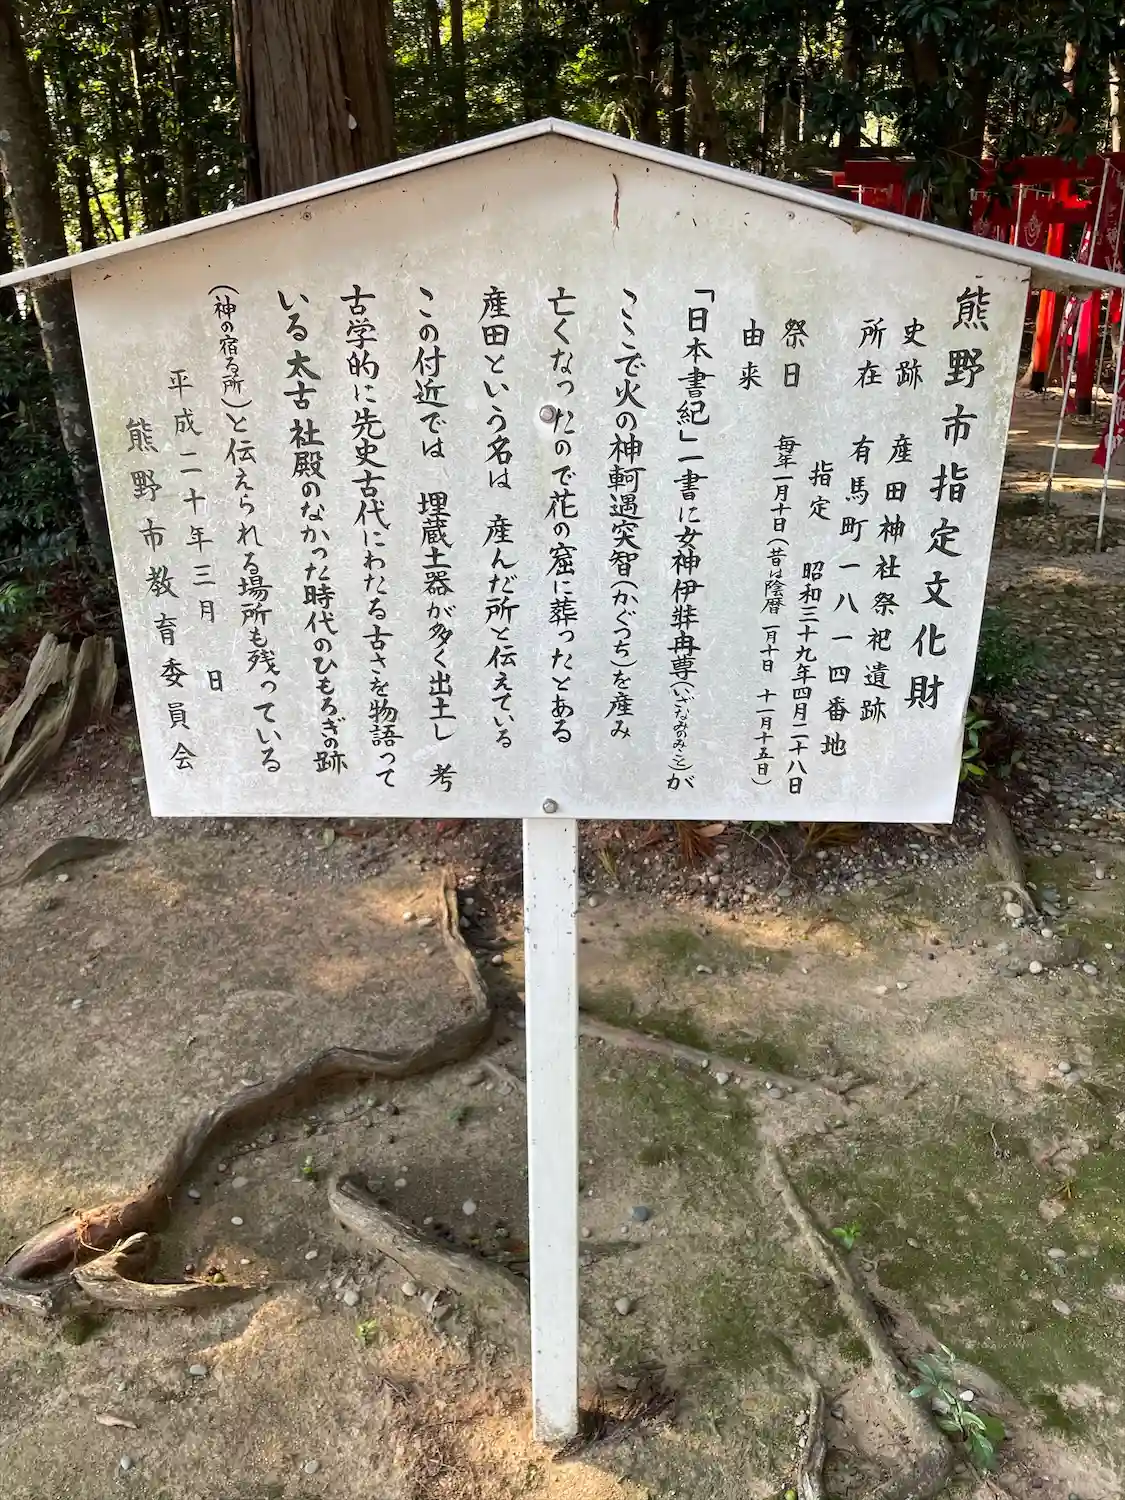 熊野市指定文化財
史跡 産田神社祭祀遺跡
所在 有馬町一八一四番地
指定 昭和三十九年四月二十八日
祭日 毎年一月十日(昔は陰暦 一月十日 十一月十五日)
由来
「日本書紀」一書に女神伊弉冉尊(いざなみのみこと)が
ここで火の神軻遇突智(かぐつち)を産み
亡くなったので花の窟に葬ったとある
産田という名は 産んだ所と伝えている
この付近では 埋蔵土器が多く出土し 考
古学的に先史古代にわたる古さを物語って
いる太古社殿のなかった時代のひもろぎの跡
(神の宿る所)と伝えられる場所も残っている
平成二十年三月 日
熊野市教育委員会